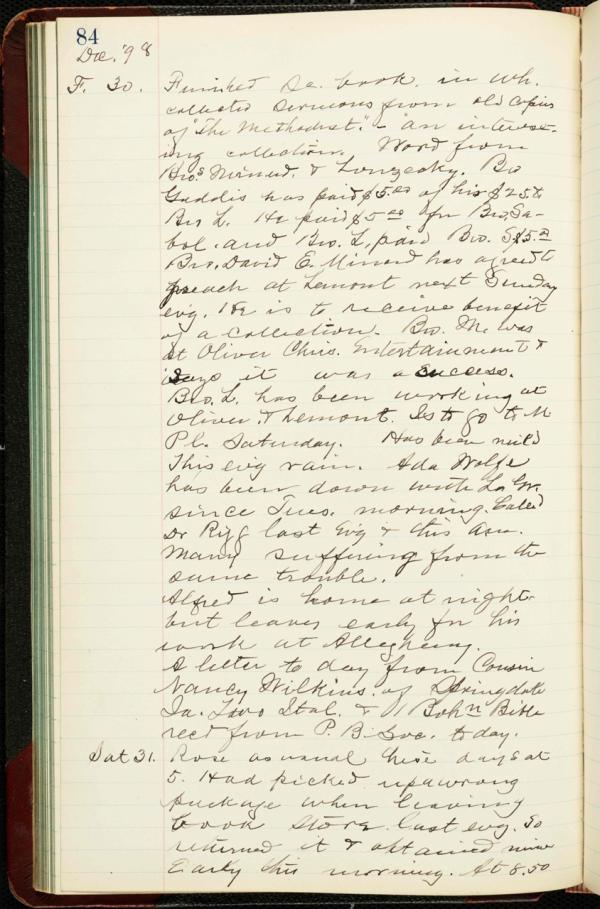 84
Dec. '98
F. 30. Finished Sc. book in wh.
collected sermons from old copies
of "The Methodist." - an interest-
ing collection. Word from
Bros Minard & Longeaky. Bro
Gaddis has paid $5.00 of his $25 to
Bro L. He paid $5.00 for Bro. Sa-
bol. and Bro. L. paid Bro. S $5.00
Bro. David E. Minard has agreed to
preach at Lemont next Sunday
evg. He is to receive benefit
of a collection. Bro. M. was
at Oliver Chris. Entertainment &
says it was a success.
Bro. L. has been working at
Oliver & Lemont. Is to go to M
Pl. Saturday. Has been mild
This evg rain. Ada Wolfe
has been down with La Gr.
since Tues. morning. Called
Dr Rigg last Evg & this
Many suffering from the
same trouble.
Alfred is home at night
but leaves early for his
work at Allegheny.
A letter to day from Cousin
Nancy Wilkins. of Springdale
Ia. Two Ital. & 1 Bohn Bible
recd from P. B. Soc. to day.
Sat 31. Rose as usual these days at
5. Had picked up a wrong
package when leaving
book store last evg. So
returned it & obtained mine
Early this morning. At 8.50